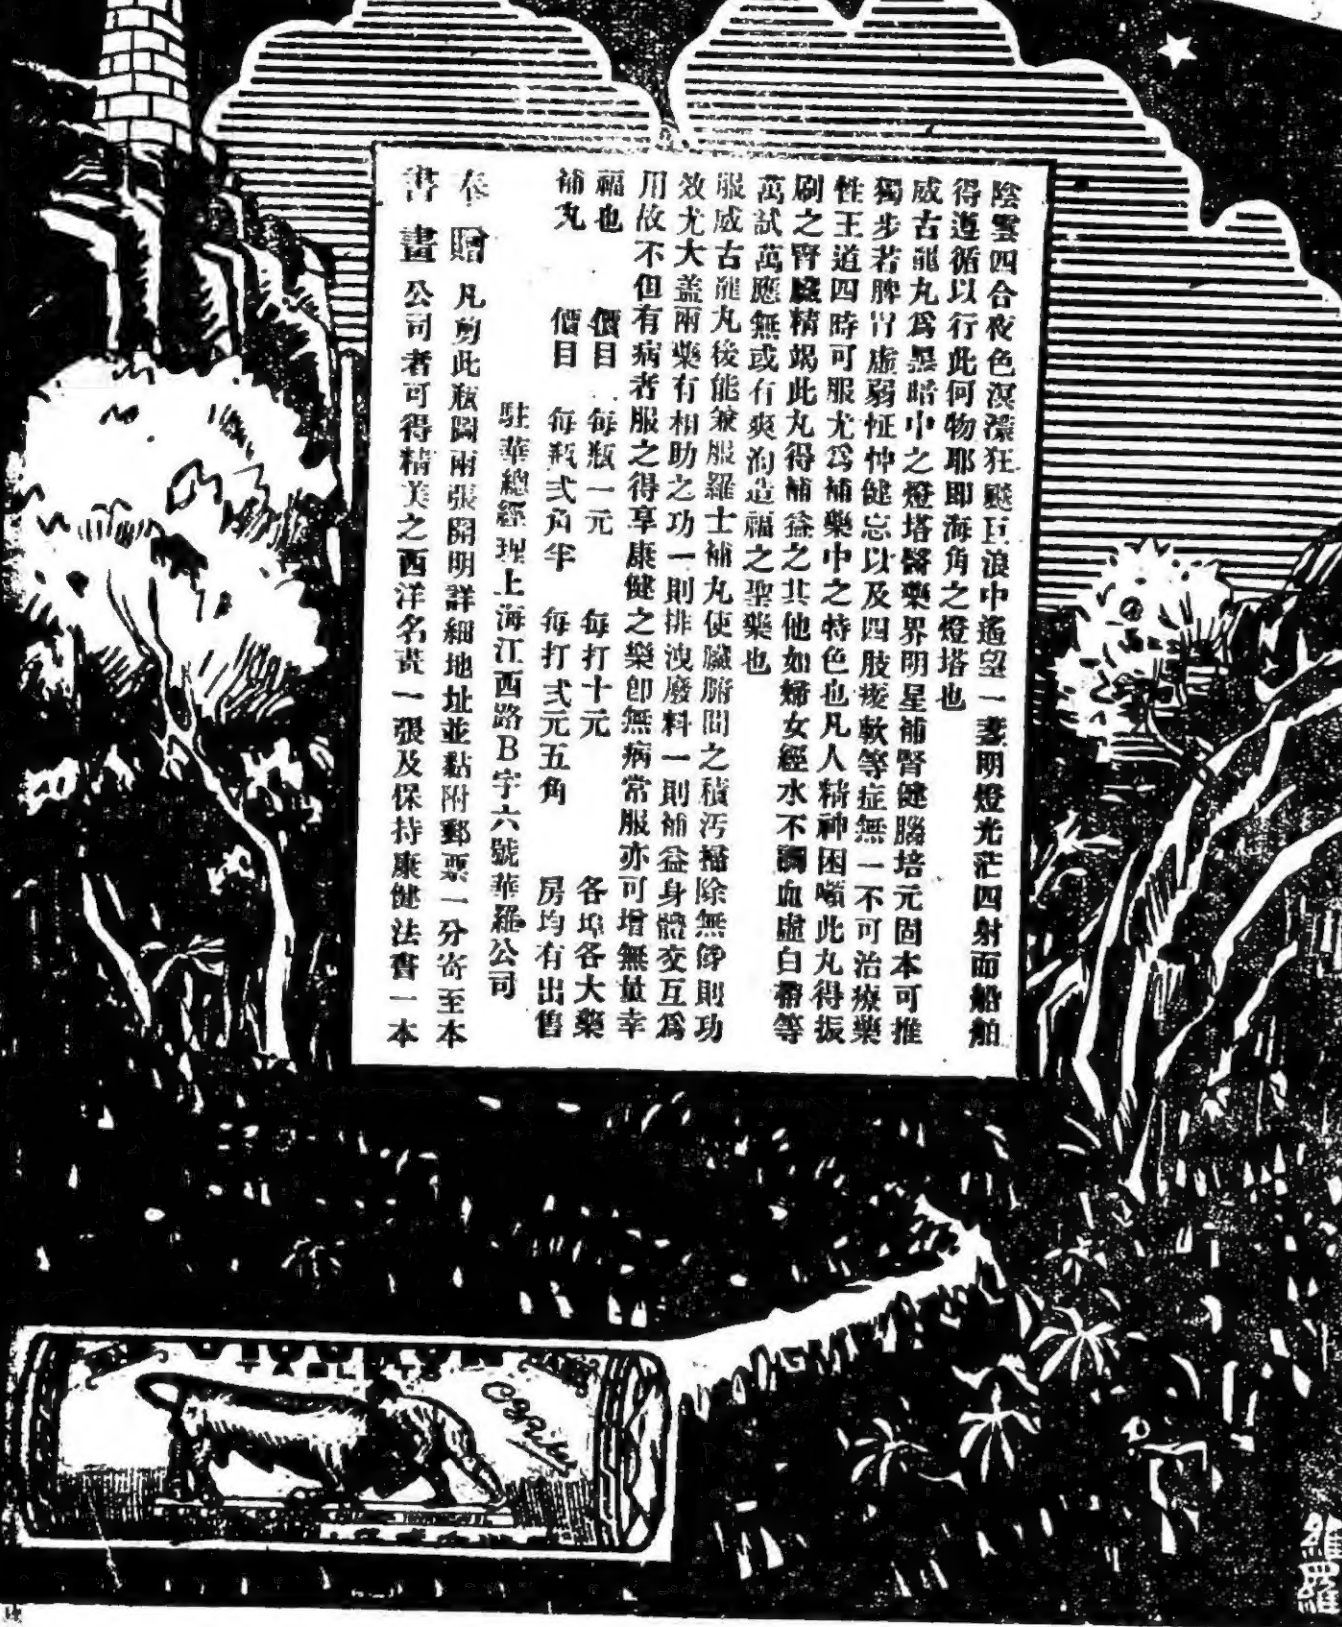 陰雲四合夜色溟濛狂颷巨浪中遙望一盞明燈光茫四射而船舶
得遵循以行此何物耶即海角之燈塔也
威古龍丸爲黑暗中之燈塔醫藥界明星補腎健腦培元固本可推
獨步若脾胃虛弱怔忡健忘以及四肢痠軟等症無一不可治療藥
性王道四時可服尤爲補藥中之特色也凡人精神困憊此丸得振
刷之腎臟精竭此丸得補益之其他如婦女經水不調血虛白帶等
萬試萬應無或有爽洵造福之聖藥也
服威古龍丸後能兼服羅士補丸使臟腑間之積污掃除無餘則功
效尤大蓋兩藥有相助之功一則排洩廢料一則補益身體交互爲
用故不但有病者服之得享康健之樂卽無病常服亦可增無量幸
福也 價目 每瓶一元 每打十元 各埠各大藥
補丸 價目 每瓶弍角半 每打弍元五角 房均有出售
駐華總經理上海江西路B字六號華羅公司
奉贈 凡剪此瓶圖兩張開明詳細地址並黏附郵票一分寄至本
書畫 公司者可得精美之西洋名畫一張及保持康健法書一本
維羅